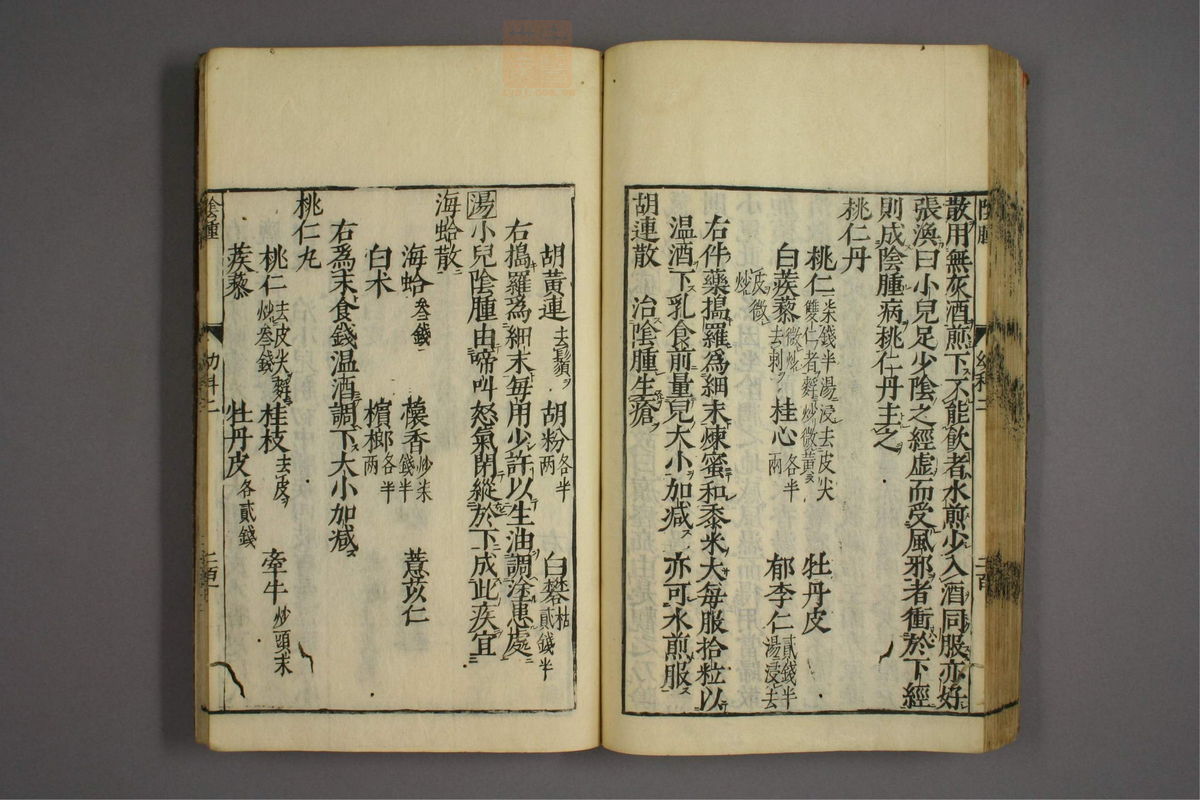 散用無灰酒煎下不能飲者水煎少入酒同服亦好
張渙曰小兒足少陰之經虛而受風邪者衝於下經
則成陰腫病桃仁丹主之
桃仁丹
桃仁 柒錢半湯浸去皮尖雙仁者麩炒微黃 牡丹皮
白蒺藜 微炒去刺 桂心 各半兩 郁李仁 貳錢半湯浸去皮微炒
右件藥搗羅爲細末煉蜜和黍米大每服拾粒以
温酒下乳食前量兒大小加減 亦可水煎服
胡連散 治陰腫生瘡
胡黃連 去鬚 胡粉 各半兩 白礬 枯貳錢半
右搗羅爲細末每用少許以生油調塗患處
湯 小兒陰腫由啼叫怒氣閉縱於下成此疾宜
海蛤散
海蛤 叄錢 蘹香 炒柒錢半 薏苡仁
白朮 檳榔 各半兩
右爲末食錢温酒調下大小加減
桃仁丸
桃仁 去皮尖麩炒叄錢 桂枝 去皮 牽牛 炒頭末
蒺藜 牡丹皮 各貳錢
陰腫
幼科二
二百一